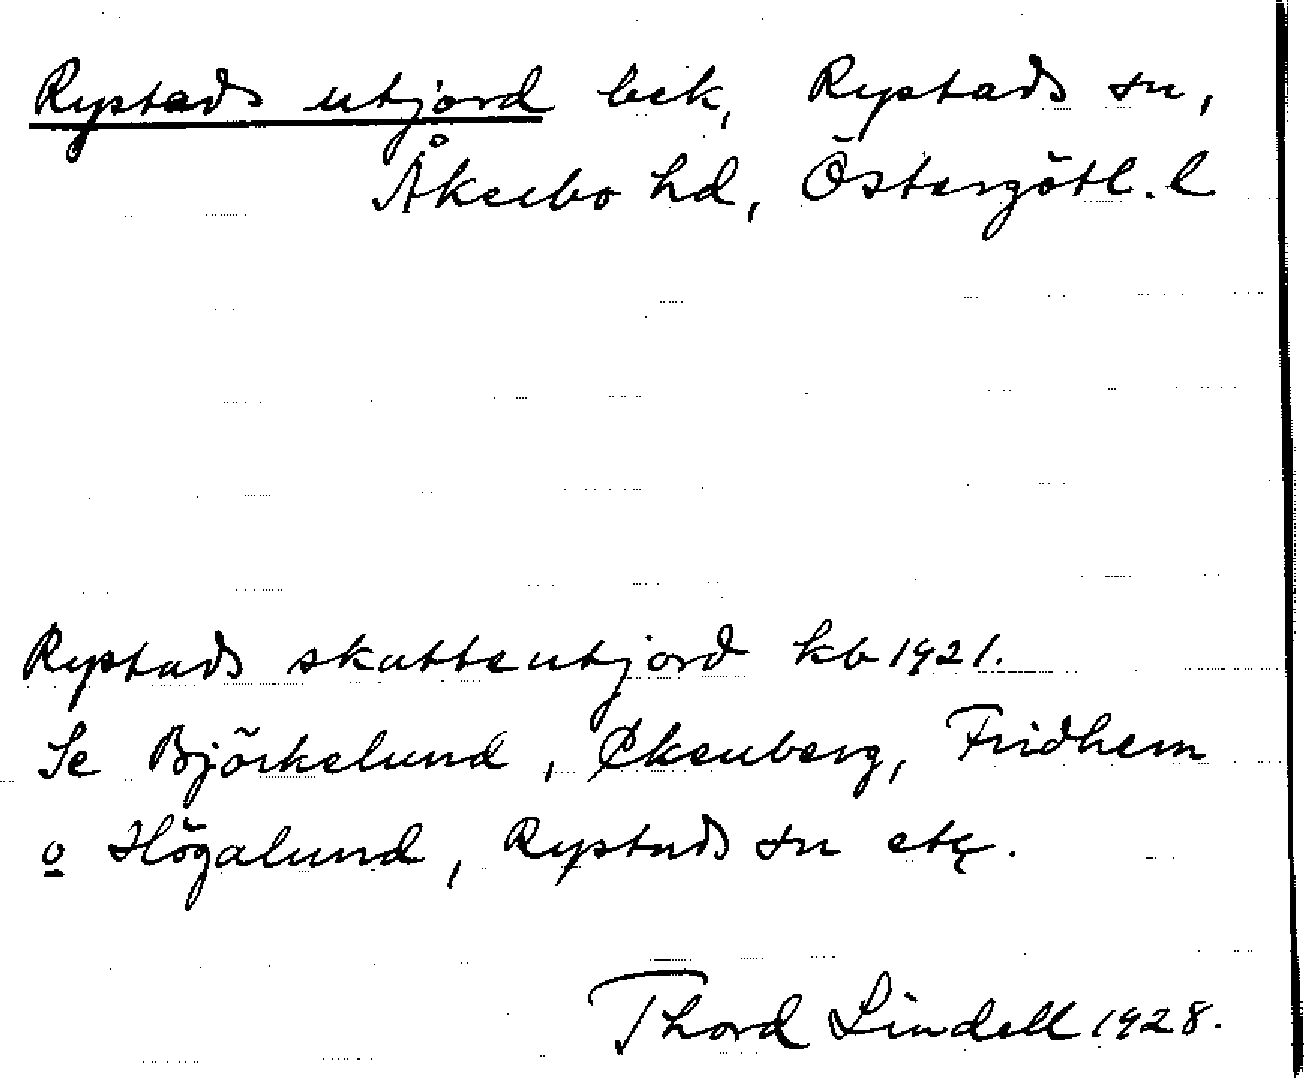 Rystads utjord bek, Rystads sn,
Åkerbo hd, Östergötl. l
Rystads skatteutjord kb 1921.
Se Björkelund, Ekenberg, Fridhem
o Högalund, Rystads sn etc.
Thord Lindell 1928.